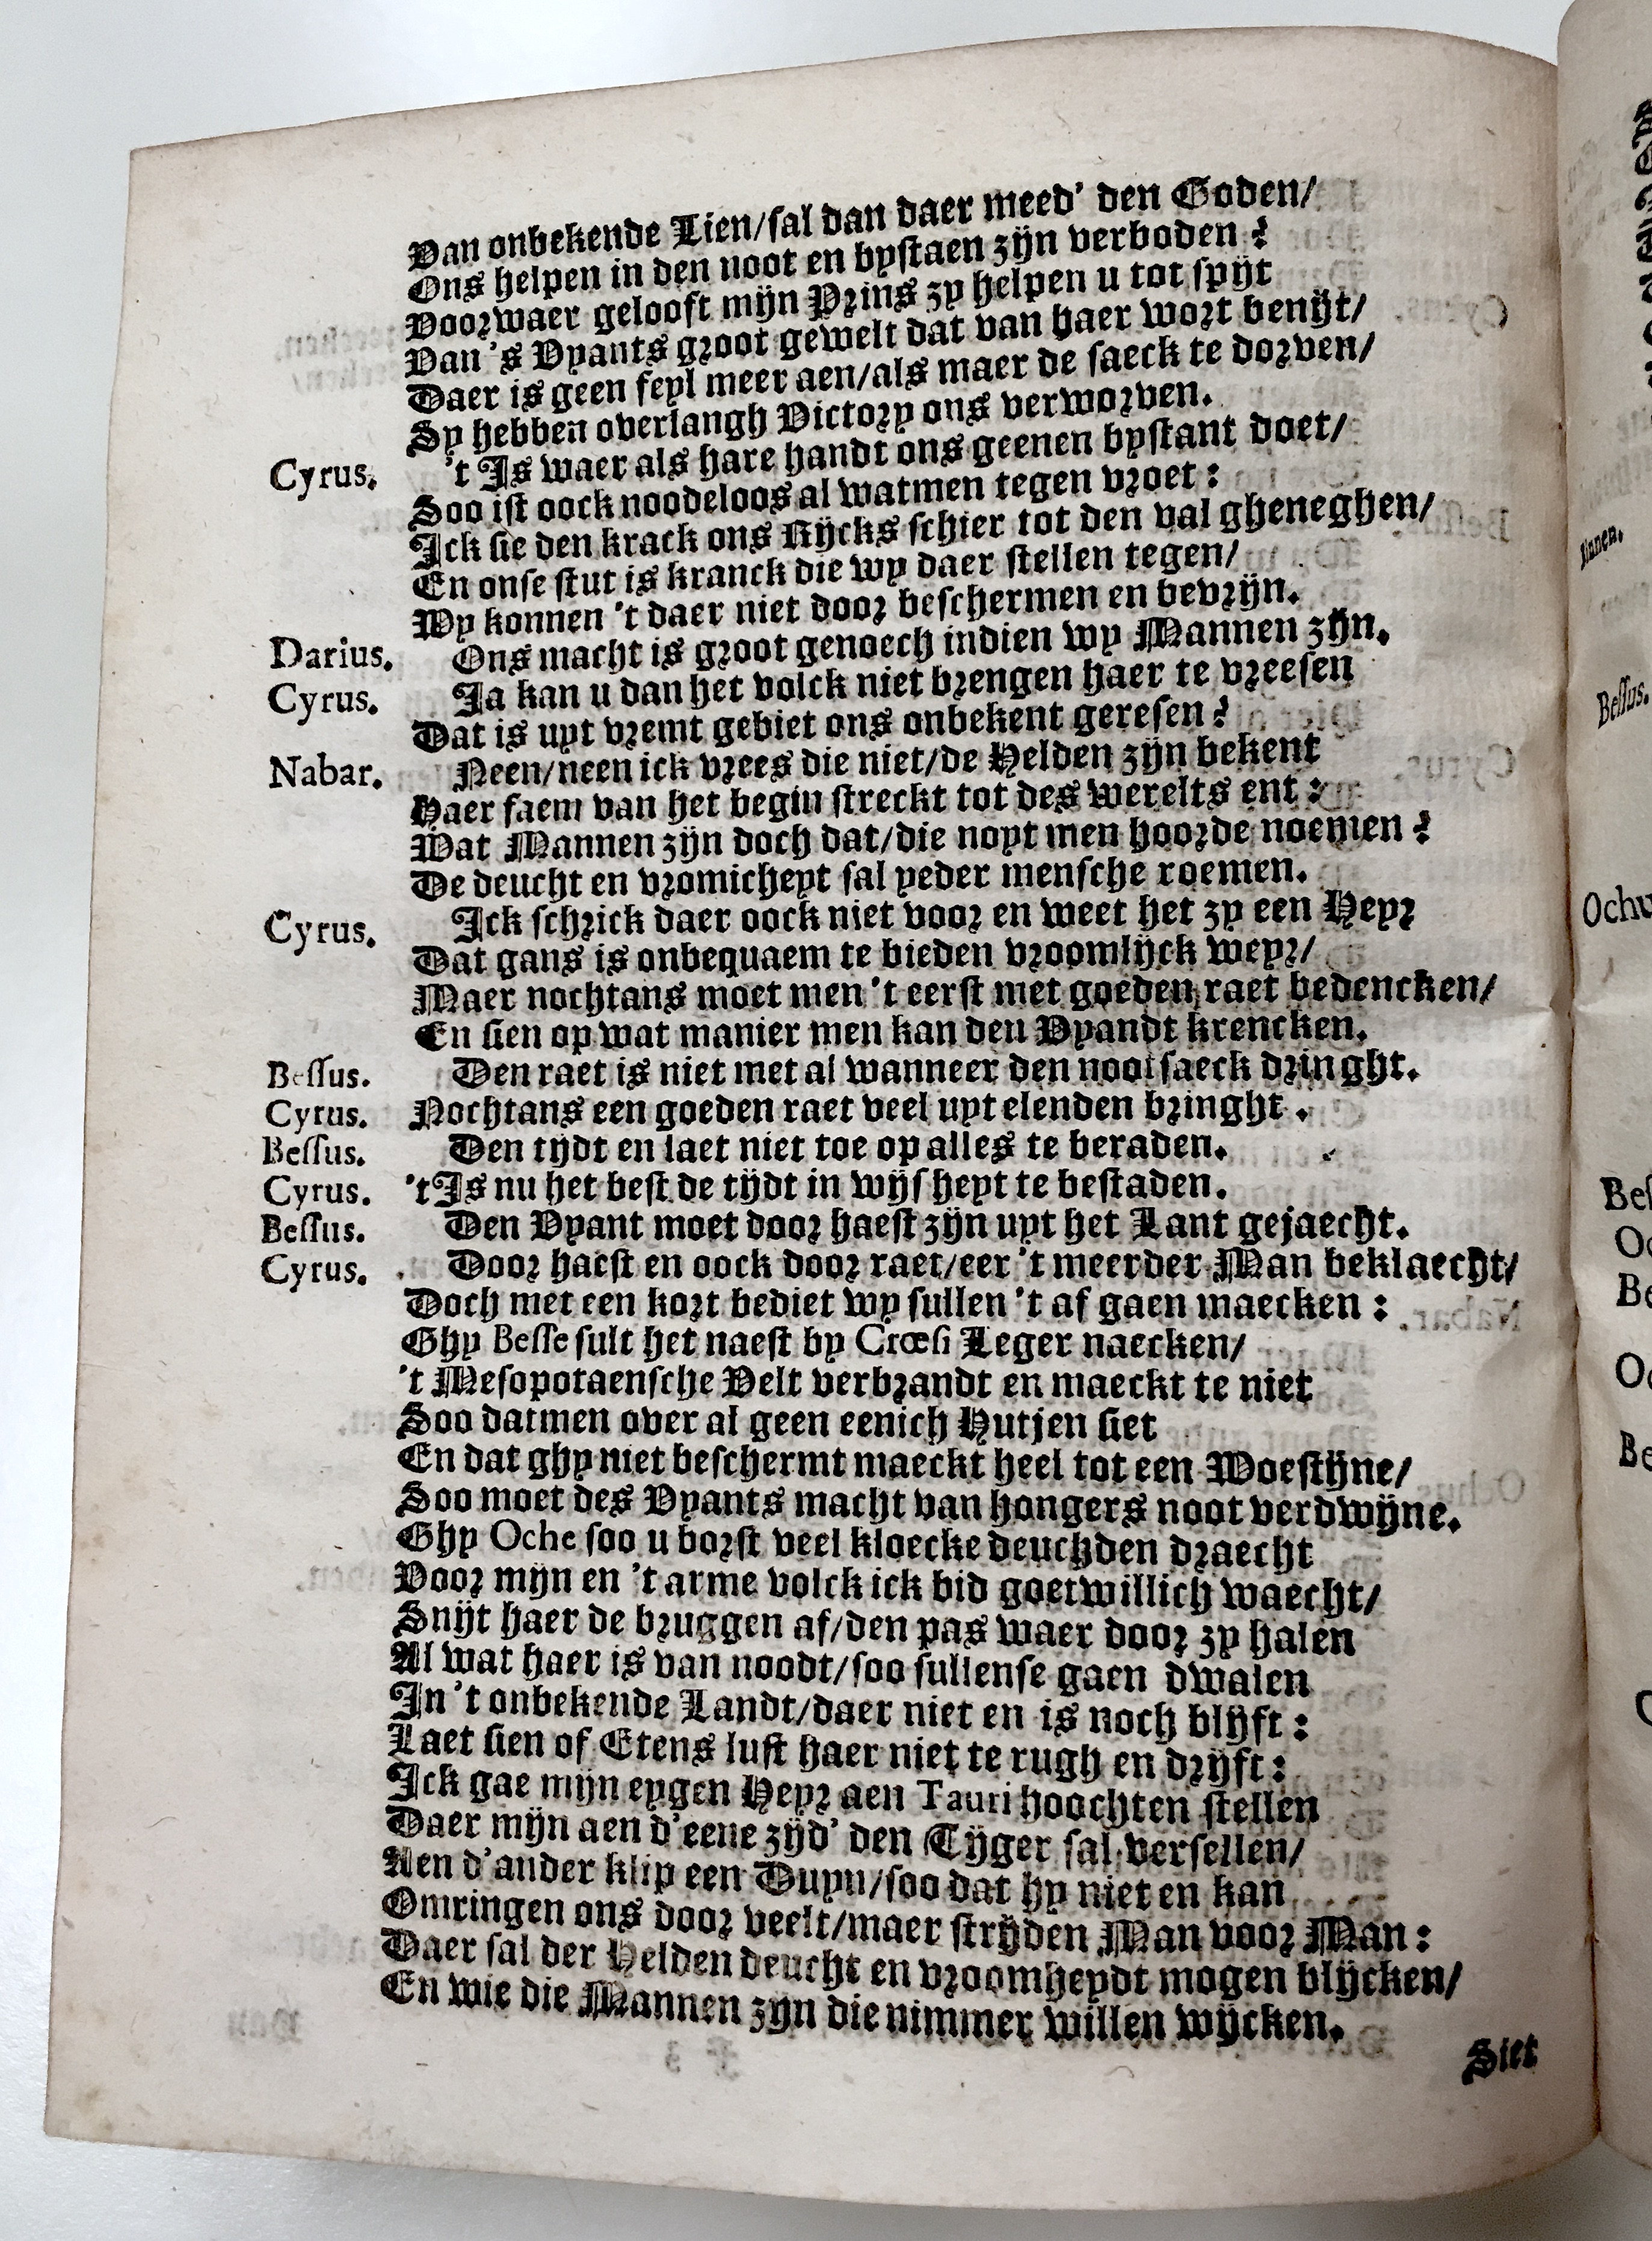 Van onbekende Lien/sal dan daer meed' den Goden/
Ons helpen in den noot en bystaen zijn verboden?
Voorwaer gelooft mijn Prins zy helpen u tot spijt
Van 's Vyants groot gewelt dat van haer wort benijt/
Daer is geen feyl meer aen/als maer de saeck te dorven/
Sy hebben overlangh Victory ons verworven.
Cyrus. 't Is waer als hare handt ons geenen bystant doet/
Soo ist oock noodeloos al watmen tegen vroet:
Ick sie den krack ons Rijcks schier tot den val gheneghen/
En onse stut is kranck die wy daer stellen tegen/
Wy konnen 't daer niet door beschermen en bevrijn.
Darius. Ons macht is groot genoech indien wy Mannen zijn.
Cyrus. Ja kan u dan het volck niet brengen haer te vreesen
Dat is uyt vremt gebiet ons onbekent geresen?
Nabar. Neen/neen ick vrees die niet/de Helden zijn bekent
Haer faem van het begin streckt tot des werelts ent:
Wat Mannen zijn doch dat/die noyt men hoorde noemen?
De deucht en vromicheyt sal yeder mensche roemen.
Cyrus. Ick schrick daer oock niet voor en weet het zy een Heyr
Dat gans is onbequaem te bieden vroomlijck weyr/
Maer nochtans moet men 't eerst met goeden raet bedencken/
En sien op wat manier men kan den Vyandt krencken.
Bessus. Den raet is niet met al wanneer den nootsaeck dringht.
Cyrus. Nochtans een goeden raet veel uyt elenden bringht.
Bessus. Den tijdt en laet niet toe op alles te beraden.
Cyrus. 't Is nu het best de tijdt in wijsheyt te bestaden.
Bessus. Den Vyant moet door haest zijn uyt het Lant gejaecht.
Cyrus. Door haest en oock door raet/eer 't meerder Man beklaecht/
Doch met een kort bediet wy sullen 't af gaen maecken:
Ghy Besse sult het naest by Crœsi Leger naecken/
't Mesopotaensche Velt verbrandt en maeckt te niet
Soo datmen over al geen eenich Hutjen siet
En dat ghy niet beschermt maeckt heel tot een Woestijne/
Soo moet des Vyants macht van hongers noot verdwijne.
Ghy Oche soo u borst veel kloecke deuchden draecht
Voor mijn en 't arme volck ick bid goetwillich waecht/
Snijt haer de bruggen af/den pas waer door zy halen
Al wat haer is van noodt/soo sullense gaen dwalen
In 't onbekende Landt/daer niet en is noch blijft:
Laet sien of Etens lust haer niet te rugh en drijft:
Ick gae mijn eygen Heyr aen Tauri hoochten stellen
Daer mijn aen d'eene zijd' den Tijger sal versellen/
Aen d'ander klip een Duyn/soo dat hy niet en kan
Omringen ons door veelt/maer strijden Man voor Man:
Daer sal der Helden deucht en vroomheydt mogen blijcken/
En wie die Mannen zijn die nimmer willen wijcken.
Siet
innen.
Bessus.